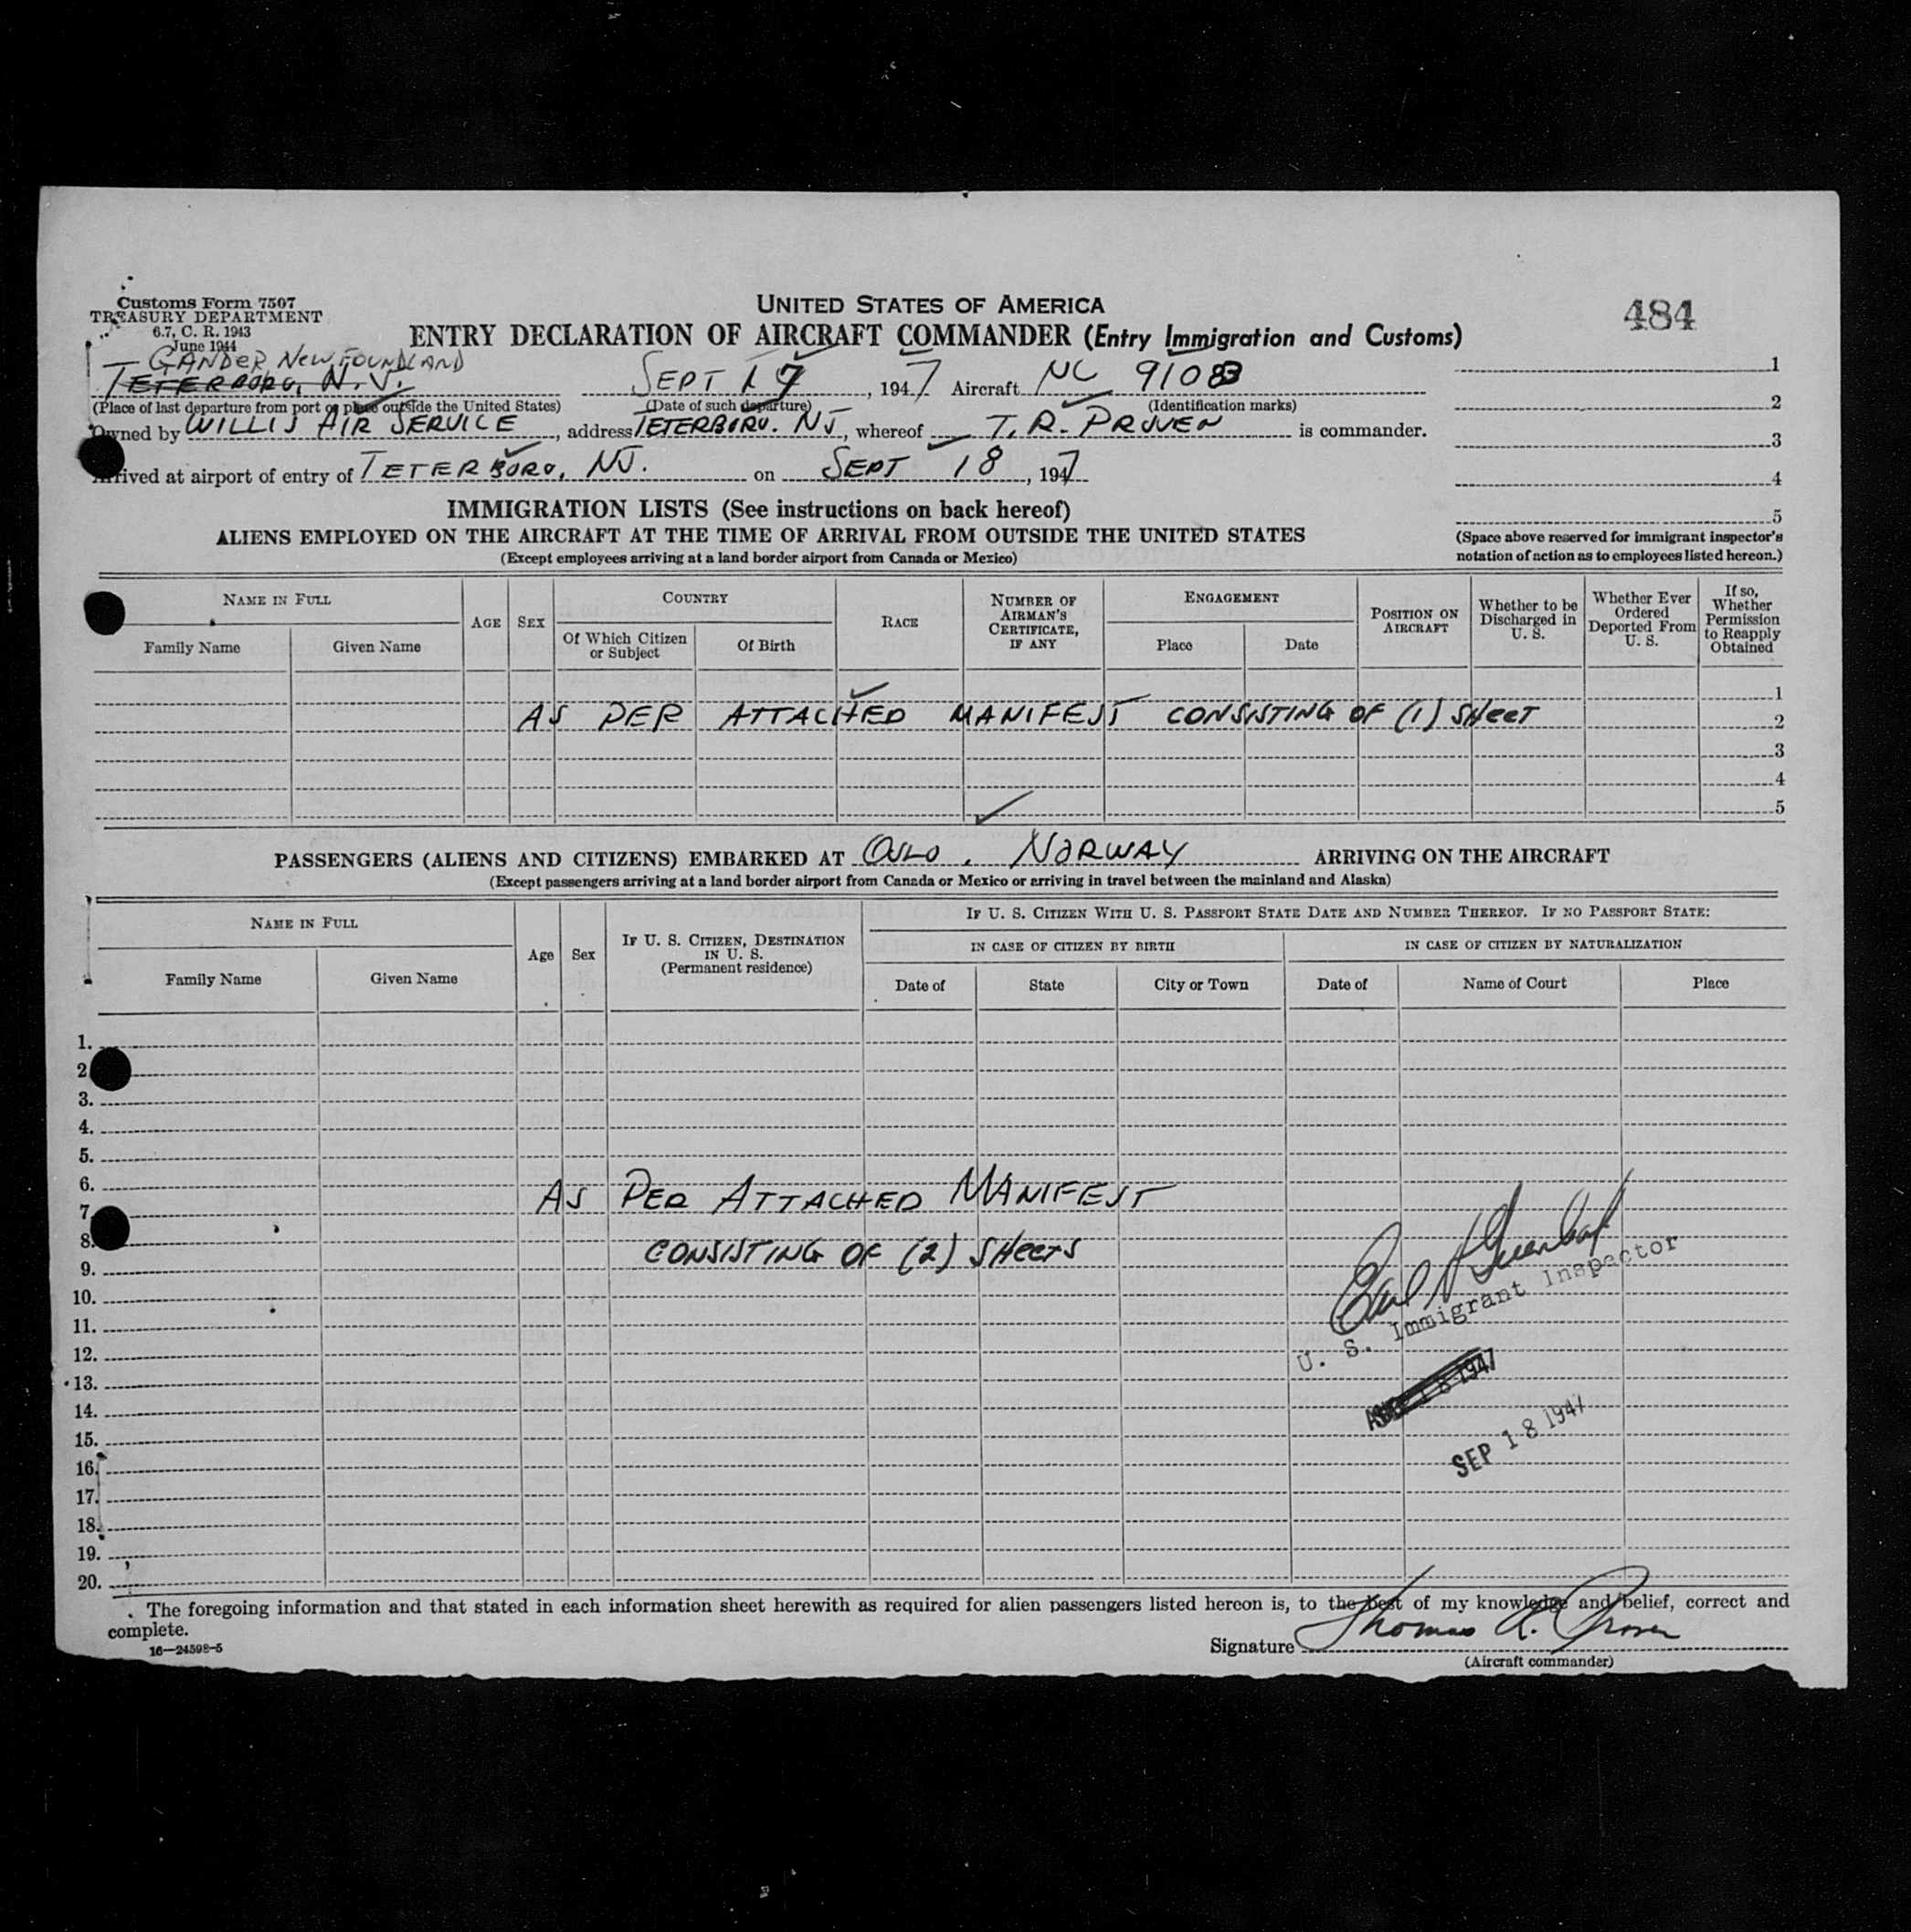 Customs Form 7507
TREASURY DEPARTMENT
6.7, C. R. 1943
June 1944
UNITED STATES OF AMERICA
ENTRY DECLARATION OF AIRCRAFT COMMANDER (Entry Immigration and Customs)
484
GANDER, NEWFOUNDLAND
TETERBORO, N. J. SEPT 17, 1947 Aircraft NC 9108
(Place of last departure from port or place outside the United States) (Date of such departure) (Identification marks)
Owned by WILLIS AIR SERVICE, address TETERBORO. NJ, whereof T. R. PROVEN is commander.
Arrived at airport of entry of TETERBORO, NJ. on SEPT 18, 1947
1
2
3
4
5
(Space above reserved for immigrant inspector's
notation of action as to employees listed hereon.)
IMMIGRATION LISTS (See instructions on back hereof)
ALIENS EMPLOYED ON THE AIRCRAFT AT THE TIME OF ARRIVAL FROM OUTSIDE THE UNITED STATES
(Except employees arriving at a land border airport from Canada or Mexico)
NAME IN FULL
Family Name Given Name
AGE
SEX
COUNTRY
Of Which Citizen or Subject
Of Birth
RACE
NUMBER OF AIRMAN'S CERTIFICATE, IF ANY
ENGAGEMENT
Place Date
POSITION ON AIRCRAFT
Whether to be Discharged in U. S.
Whether Ever Ordered Deported From U. S.
If so, Whether Permission to Reapply Obtained
1
AS PER ATTACHED MANIFEST CONSISTING OF (1) SHEET 2
3
4
5
PASSENGERS (ALIENS AND CITIZENS) EMBARKED AT OSLO, NORWAY ARRIVING ON THE AIRCRAFT
(Except passengers arriving at a land border airport from Canada or Mexico or arriving in travel between the mainland and Alaska)
NAME IN FULL
Family Name Given Name
Age
Sex
IF U. S. CITIZEN, DESTINATION IN U. S.
(Permanent residence)
IF U. S. CITIZEN WITH U. S. PASSPORT STATE DATE AND NUMBER THEREOF. IF NO PASSPORT STATE:
IN CASE OF CITIZEN BY BIRTH
IN CASE OF CITIZEN BY NATURALIZATION
Date of State City or Town Date of Name of Court Place
1.
2
3.
4.
5.
6.
7. AS PER ATTACHED MANIFEST
8.
9. CONSISTING OF (2) SHEETS
10.
11.
12.
13.
14.
15.
16.
17.
18.
19.
20.
U. S. Immigrant Inspector
18 1947
SEP 18 1947
The foregoing information and that stated in each information sheet herewith as required for alien passengers listed hereon is, to the best of my knowledge and belief, correct and
complete.
16—24598-5
Signature Thomas R. Proven
(Aircraft commander)